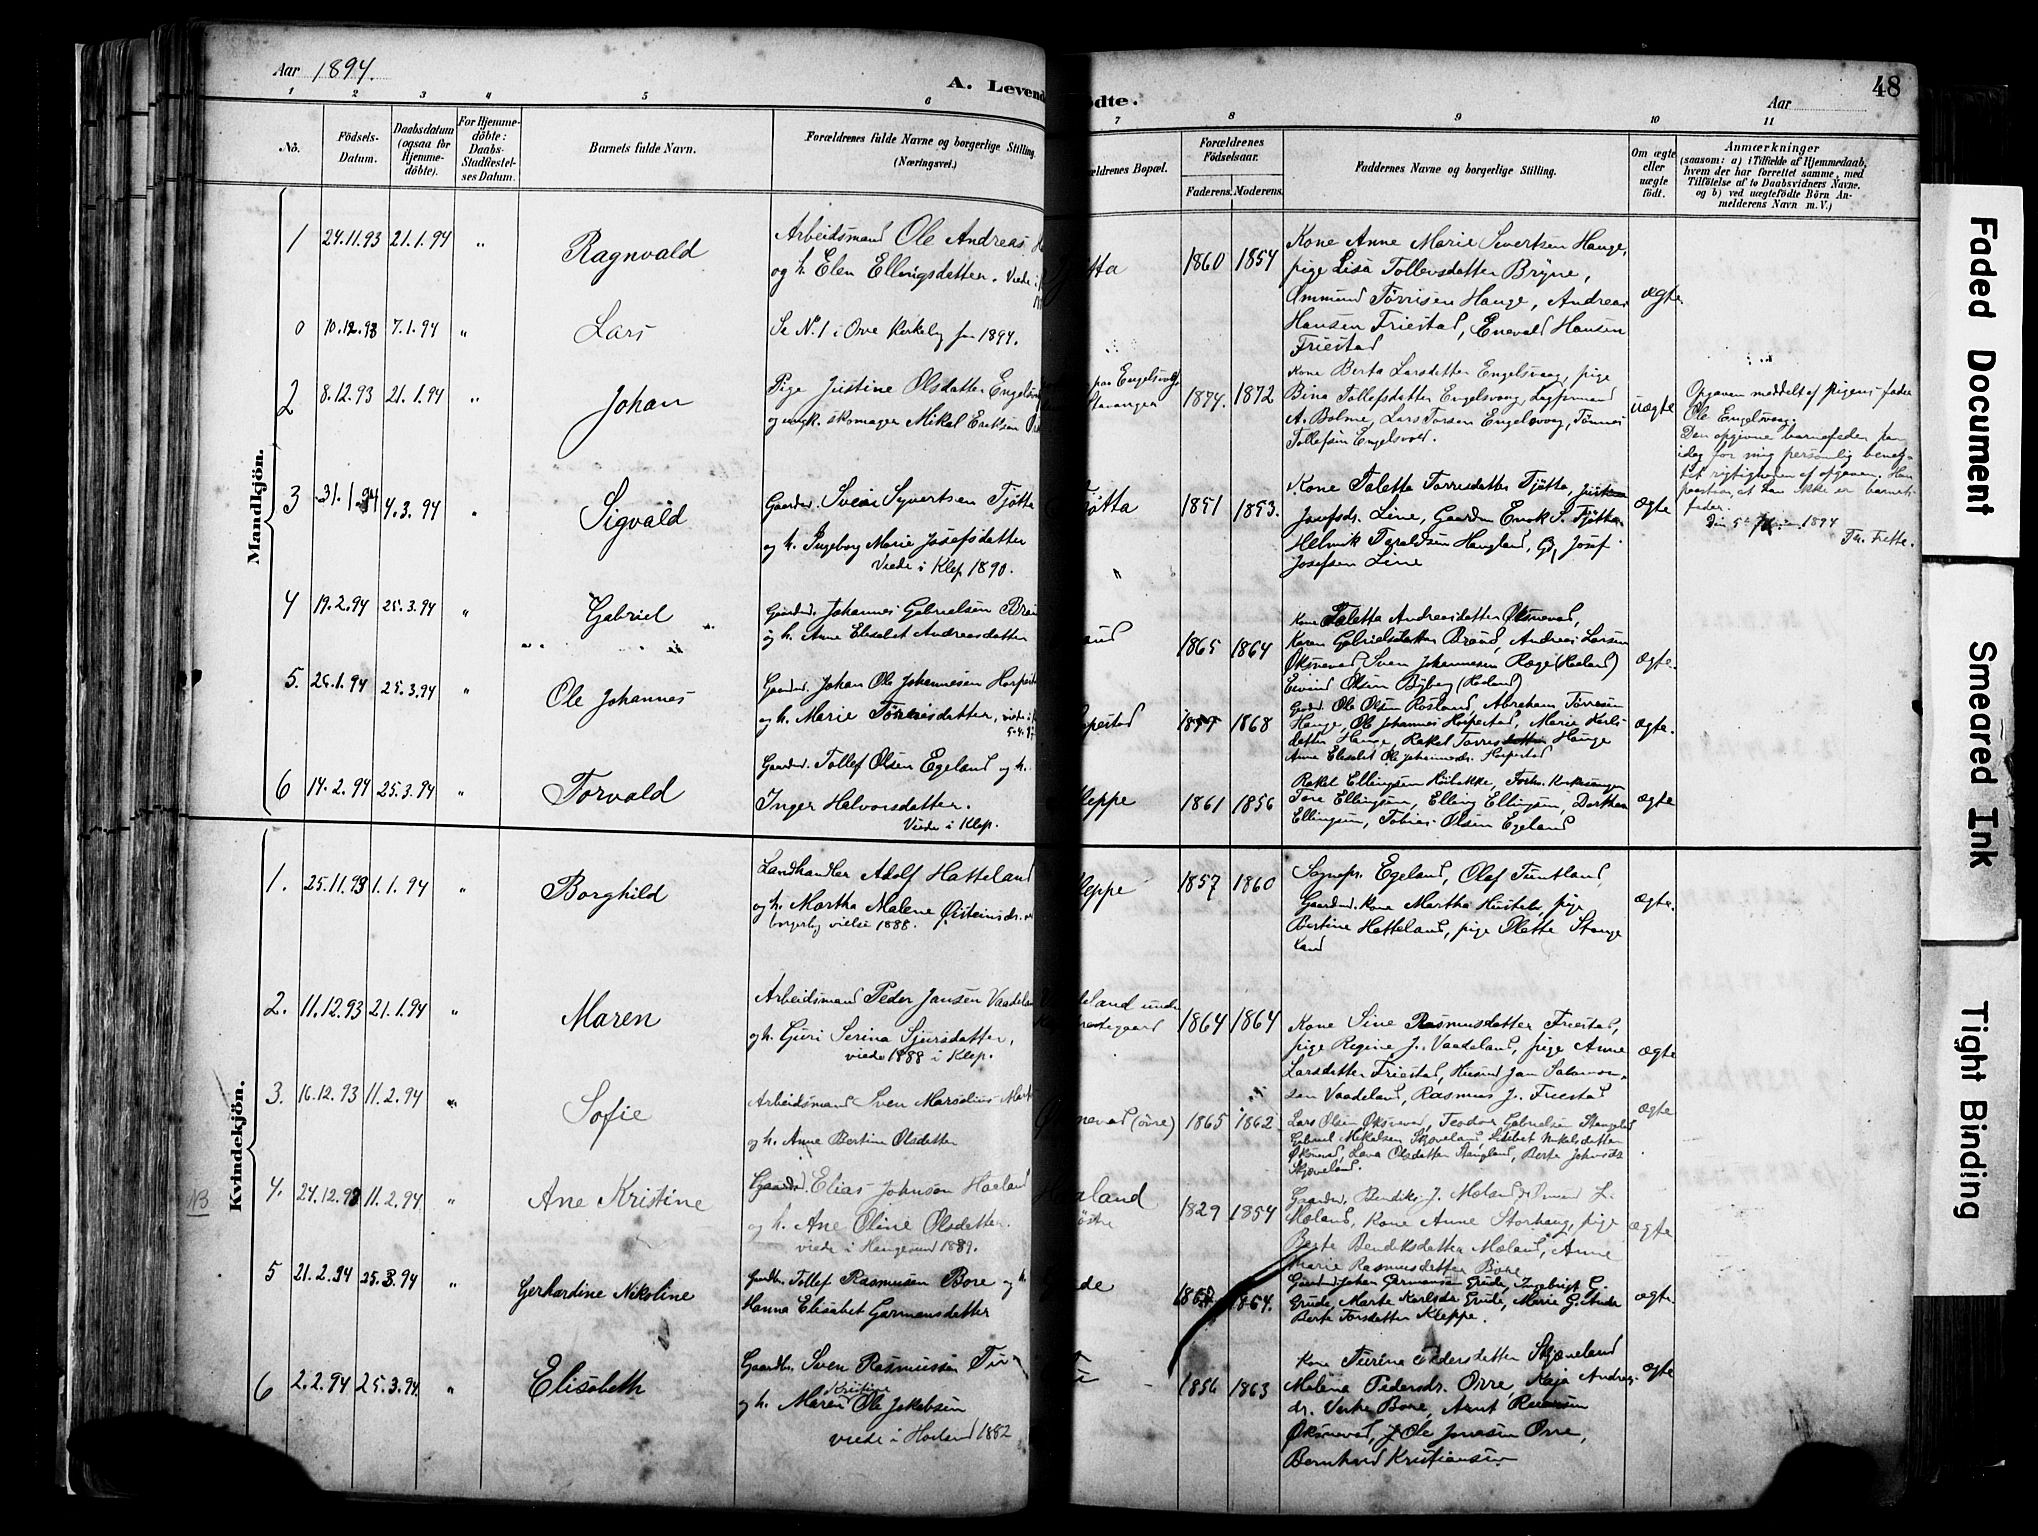 Aar 1894.
A. Levend
ödte.
Aar
48
1 2 3 4 5 6 7 8 9 10 11
No.
Födsels-Datum.
Daabsdatum (ogsaa for Hjemme-döbte).
For Hjemme-döbte: Daabs-Stadfæstel-ses Datum.
Barnets fulde Navn.
Forældrenes fulde Navne og borgerlige Stilling
(Næringsvei.)
ældrenes Bopæl.
Forældrenes Födselsaar.
Faderens. Moderens.
Faddernes Navne og borgerlige Stilling.
Om ægte eller uægte födt.
Anmærkninger
(saasom: a) i Tilfælde af Hjemmedaab,
hvem der har forrettet samme, med
Tilföielse af to Daabsvidners Navne.
og b) ved uægtefödte Börn An-
melderens Navn m. V.)
Mandkjön.
1 24.11.93 21.1.94 " Ragnvald
Arbeidsmand Ole Andreas
og h. Elen Ellingsdatter. Viede i
tta 1860 1854
Kone Anne Marie Sivertsen Hauge,
pige Lisa Tollevsdatter Bryne,
Ommund Törrisen Hauge, Andreas
Hansen Friestad, Enevald Hansen
Friestad
ægte
0 10.12.93 7.1.94 " Lars
Se N. 1 i Orre Kirkebog for 1894.
2 8.12.93 21.1.94 " Johan
Pige Justine Olsdatter Engelsv
og ungk. skomager Mikal Eriksen
paa Engelsvold
Stavanger
1874. 1872
Kone Berta Larsdatter Engelsvaag, pige
Bina Tollefsdatter Engelsvaag, Lagfmand
A. Bolme, Lars Torsen Engelsvaag, Tönnes
Tollefsen Engelsvold.
uægte
Opgaven meddelt af pigens fader
Ole Engelsvaag.
Den opgivne barnefader har
idag for mig personlig benæg-
tet rigtigheden af opgaven. Han
paastaar, at han ikke er barnets
fader.
1894
3 31.1.94 4.3.94 " Sigvald
Gaardbr. Svein Syvertsen Tjøtta
og h. Ingeborg Marie Josefsdatter
Viede i Klep 1890.
jøtta 1851 1853.
Kone Taletta Torresdatter Tjøtta,
Josefsdr. Line, Gaardm Enok S. Tjøtta
Helmik Haugland, Josef
Josefsen Line
ægte
4 19.2.94 25.3.94 " Gabriel
Gaardbr. Johannes Gabrielsen Brau
og h. Anne Elisabet Andreasdatter
1865 1864
Kone Taletta Andreasdatter Øksnevad,
Karen Gabrielsdatter Braud, Andreas Larsen
Øksnevad, Sven Johannesen Ræge (Haaland)
Eivind Olsen Byberg (Haaland)
ægte.
5. 26.1.94 25.3.94 " Ole Johannes
Gaardbr. Johan Ole Johannesen Horpestad
og h. Marie Törresdatter, viede i
pestad 1868
Gaardbr Ole Olsen Rosland, Abraham Törresen
Hauge, Ole Johannes Horpestad, Marie Karls-
datter Hauge, Rakel Torresdatter Hauge
Anne Elisabet Ole Johannesdr. Horpestad
ægte.
6 14.2.94 25.3.94 " Torvald
Gaardbr. Tollef Olsen Egeland og h.
Inger Halvorsdatter.
Viede i Klep.
leppe 1861 1856
Rakel Ellingsen
Tore Ellingsen, Elling Ellingsen, Dorthea
Ellingsen, Tobias Olsen Egeland
ægte
Kvindekjön.
1. 25.11.93 1.1.94 " Borghild
Landhandler Adolf Hatteland
og h. Martha Malene Øisteinsdr.
borgerlig vielse 1888.
leppe 1857 1860
Sognepr. Egeland, Olaf Tuntland,
Gaardm. kone Martha Hustele, pige
Bertine Hatteland, pige Olette Stange
land
ægte.
2. 11.12.93 21.1.94 " Maren
Arbeidsmand Peder Jansen Vaadelan
og h. Guri Serina Sjursdatter,
viede 1888 i Klep.
eland under
præstegaard
1864 1864
Kone Sine Rasmusdatter Friestad,
pige Regine J. Vaadeland, pige Anne
Larsdatter Friestad, Husmd Jan Salomon-
sen Vaadeland, Rasmus J. Friestad
ægte
3. 16.12.93 11.2.94 " Sofie
Arbeidsmand Sven Marselius
og h. Anne Bertine Olsdatter
nevad (övre) 1865 1862
Lars Olsen Øksnevad, Teodor Gabrielsen Stangeland
Gabriel Mikalsen Skjæveland, Elisabet Nikolsdatter
Øksnevad, Lava Olsdatter Haugland, Berte Johnsdr.
Skjæveland.
ægte
NB
4. 24.12.93 11.2.94 " Ane Kristine
Gaardbr. Elias Johnson Haaland
og h. Ane Oline Olsdatter.
viede i Haugesund 1889.
aland
östre
1829 1854
Gaardbr. Bendiks J. Mæland,
Mæland, Kone Anne Storhaug, pige
Berte Bendiksdatter Mæland, Anne
Marie Rasmusdatter Bore
ægte
5 21.2.94 25.3.94 " Gerhardine Nikoline
Gaardbr. Tollef Rasmusen Bore og h.
Hanna Elisabet Garmansdatter
de 1864.
Gaardbr Johan Germansen Grude, Ingebrigt G.
Grude, Marta Karlsdr Grude, Marie G. Anda
Berte Torsdatter Kleppe.
ægte.
6 2.2.94 25.3.94 " Elisabeth
Gaardbr. Sven Rasmussen Tu
og h. Maren Kristine Ole Jakobsen
viede i Haaland 1882
1856 1863
Kone Turina Pedersdatter Skjæveland
Malena Pedersdr. Orre, Kaja Andreas-
dr. Verke Bore, Arnt Rasmussen
Øksnevad, Ole Jonasen Orre,
Bernhard Kristiansen
ægte
Faded Document
Smeared Ink
Tight Binding